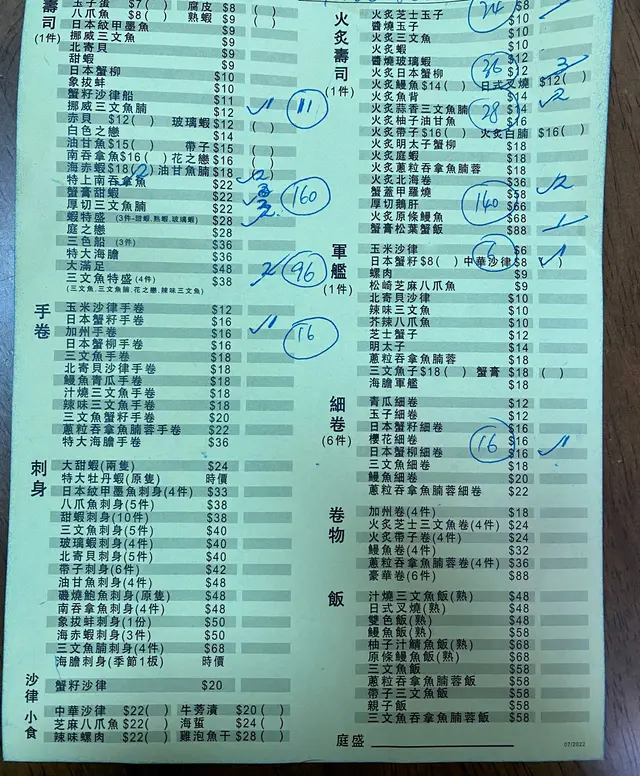 壽司
(1件)
玉子蛋 $7( ) 腐皮 $8
八爪魚 $8( ) 熟蝦 $9 ( )
日本紋甲墨魚 $9
挪威三文魚 $9
北寄貝 $9
甜蝦 $9
日本蟹柳 $10
象拔蚌 $10
蟹籽沙律船 $11
挪威三文魚腩 $12
赤貝 $12( ) 玻璃蝦 $12 ( )
白色之戀 $14
油甘魚$15( ) 帶子$15 ( )
南吞拿魚$16( ) 花之戀 $16 ( )
海赤蝦$18(2) 油甘魚腩$18 ( )
特上南吞拿魚 $22
蟹膏甜蝦 $22
厚切三文魚腩 $22
蝦特盛 (3件-甜蝦,熟蝦,玻璃蝦) $28
庭之戀 $28
三色船 (3件) $36
特大海膽 $36
大滿足 $48
三文魚特盛 (4件) $38
(三文魚,三文魚腩,花之戀,辣味三文魚)
11
160
96
16
手卷
玉米沙律手卷 $12
日本蟹籽手卷 $16
加州手卷 $16
日本蟹柳手卷 $16
三文魚手卷 $18
北寄貝沙律手卷 $18
鰻魚青瓜手卷 $18
汁燒三文魚手卷 $18
辣味三文魚手卷 $18
三文魚蟹籽手卷 $20
蔥粒吞拿魚腩蓉手卷 $22
特大海膽手卷 $36
刺身
大甜蝦(兩隻) $24
特大牡丹蝦(原隻) 時價
日本紋甲墨魚刺身(4件) $33
八爪魚刺身(5件) $38
甜蝦刺身(10件) $38
三文魚刺身(5件) $40
玻璃蝦刺身(4件) $40
北寄貝刺身(5件) $40
帶子刺身(6件) $42
油甘魚刺身(4件) $48
磯燒鮑魚刺身(原隻) $48
南吞拿魚刺身(4件) $48
象拔蚌刺身(1份) $50
海赤蝦刺身(3件) $50
特上南吞拿刺身(4件) $68
海膽刺身(季節1板) 時價
沙律 小食
蟹籽沙律 $20
中華沙律 $22( ) 牛蒡漬 $20( )
芝麻八爪魚 $22( ) 海蜇 $24( )
辣味螺肉 $22( ) 雞泡魚干 $28( )
火炙壽司
(1件)
火炙芝士玉子 $8
醬燒玉子 $10
火炙三文魚 $10
火炙蝦 $10
醬燒玻璃蝦 $12
火炙日本蟹柳 $12
火炙鰻魚 $14( ) 日式叉燒 $12( )
火炙魚背 $14
火炙蒜香三文魚腩 $14
火炙柚子油甘魚 $16
火炙帶子$16( ) 火炙白腩 $16( )
火炙明太子蟹柳 $18
火炙庭蝦 $18
火炙蔥粒吞拿魚腩蓉 $18
火炙北海卷 $36
蟹蓋甲羅燒 $58
厚切鵝肝 $66
火炙原條鰻魚 $68
蟹膏松葉蟹飯 $88
24
36
28
140
6
16
軍艦
(1件)
玉米沙律 $6
日本蟹籽$8( ) 中華沙律$8( )
螺肉 $9
松崎芝麻八爪魚 $9
北寄貝沙律 $10
辣味三文魚 $10
芥辣八爪魚 $10
芝士蟹子 $12
明太子 $14
蔥粒吞拿魚腩蓉 $18
三文魚子$18( ) 蟹膏 $18 ( )
海膽軍艦 $18
細卷
(6件)
青瓜細卷 $12
玉子細卷 $12
日本蟹籽細卷 $16
櫻花細卷 $16
日本蟹柳細卷 $16
三文魚細卷 $18
鰻魚細卷 $20
蔥粒吞拿魚腩蓉細卷 $22
卷物
加州卷(4件) $18
火炙芝士三文魚卷(4件) $24
火炙帶子卷(4件) $24
鰻魚卷(4件) $32
蔥粒吞拿魚腩蓉卷(4件) $36
豪華卷(6件) $88
飯
汁燒三文魚飯(熟) $48
日式叉燒(熟) $48
雙色飯(熟) $48
鰻魚飯(熟) $58
柚子汁鯖魚飯(熟) $68
原條鰻魚飯(熟) $68
三文魚飯 $58
蔥粒吞拿魚腩蓉飯 $58
帶子三文魚飯 $58
親子飯 $58
三文魚吞拿魚腩蓉飯 $58
庭盛
07/2022